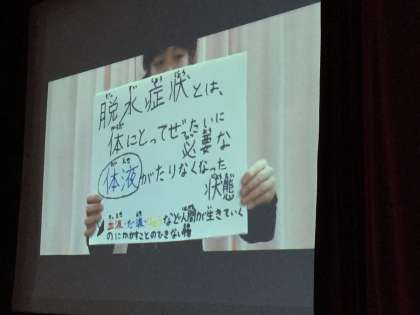 脱水症状とは、
体にとってぜたいに
必要な
体液がたりなくなった
状態
血液・だ液・など人間が生きていく
のにかかすことのできない